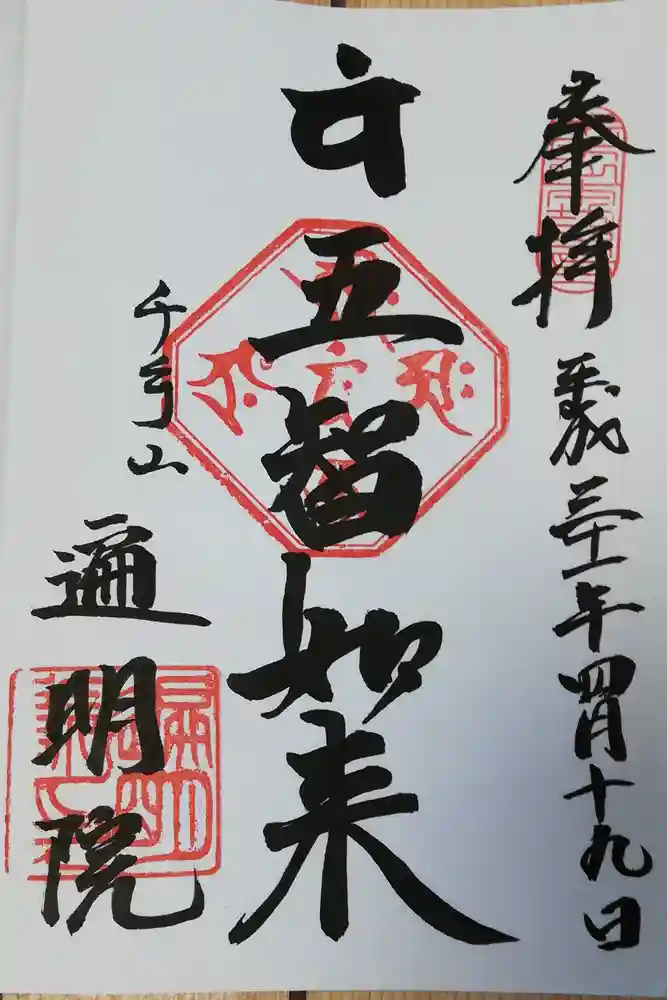 奉拝
平成三十一年四月十九日
五智如来
千手山
遍明院